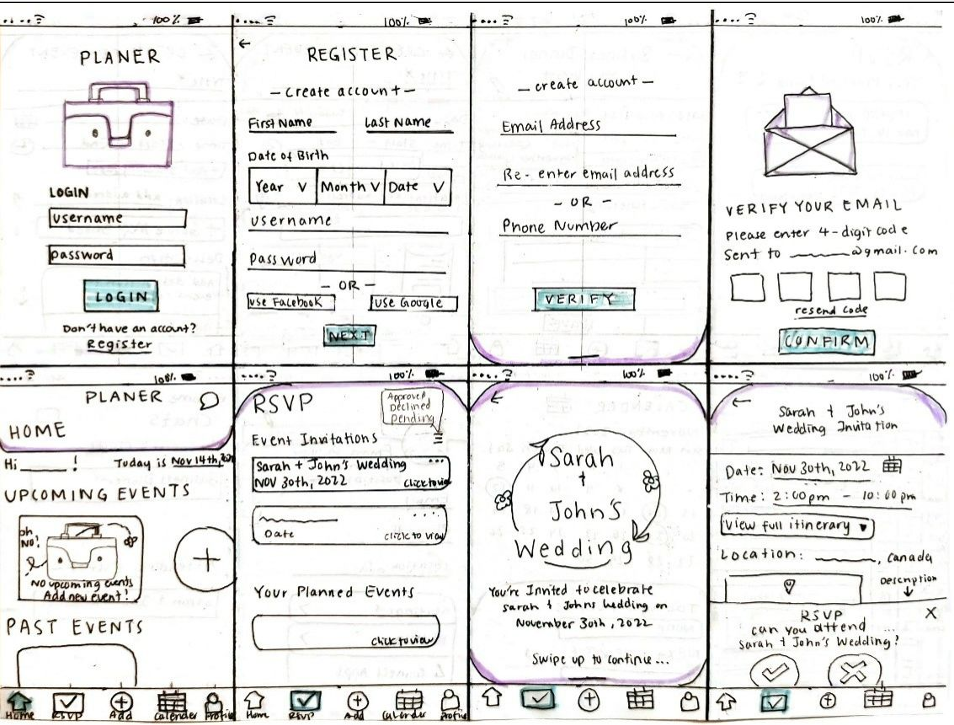 100%
PLANER
LOGIN
username
password
LOGIN
Don't have an account?
Register
100%
REGISTER
- create account -
First Name Last Name
Date of Birth
Year Month Date
username
password
- OR -
use Facebook use Google
NEXT
100%
- create account -
Email Address
Re-enter email address
- OR -
Phone Number
VERIFY
100%
VERIFY YOUR EMAIL
Please enter 4-digit code
Sent to ______@gmail.com
resend code
CONFIRM
100%
PLANER
HOME
Hi ____! Today is Nov 14th, 20
UPCOMING EVENTS
oh
NO!
NO upcoming events
Add new event!
+
PAST EVENTS
Home RSVP Add Calender Profile
100%
RSVP
Approved
Declined
Pending
Event Invitations
Sarah + John's Wedding
NOV 30th, 2022 click to view
Date click to view
Your Planned Events
click to view
Home RSVP Add Calender Profile
100%
Sarah
+
John's
Wedding
You're Invited to celebrate
Sarah + Johns Wedding on
November 30th, 2022
Swipe up to continue...
100%
Sarah + John's
Wedding Invitation
Date: Nov 30th, 2022
Time: 2:00pm - 10:00pm
View full itinerary
Location: ______, Canada
Description
RSVP X
can you attend ...
Sarah + John's Wedding?